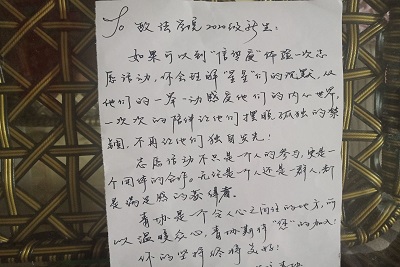 To 政法学院2020级新生：
如果可以到“信望爱”体验一次志
愿活动，你会理解“星星”们的沉默，从
他们的一举一动感受他们的内心世界，
一次次的陪伴让他们摆脱孤独的禁
锢，不再让他们独自发光！
志愿活动不只是个人的参与，更是一
个团体的合作。无论是个人还是一群人，都
是满足感的获得者。
青协是一个令人心之向往的地方，可
以温暖众心，青协期待“您”的加入！
你的坚持终将美好！